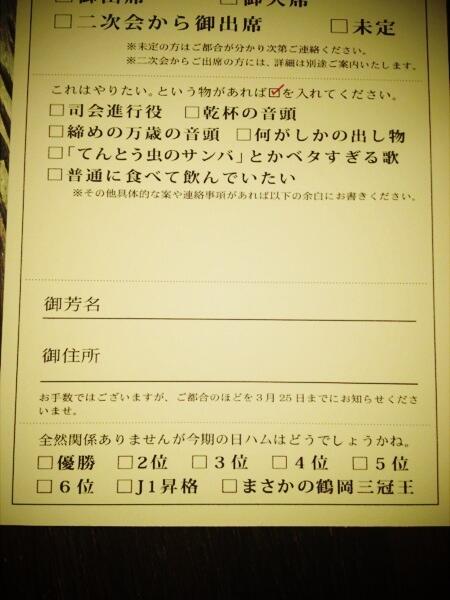 □御出席　□御欠席
□二次会から御出席　□未定
※未定の方はご都合が分かり次第ご連絡ください。
※二次会からご出席の方には、詳細は別途ご案内いたします。
これはやりたい。という物があれば☑を入れてください。
□司会進行役　□乾杯の音頭
□締めの万歳の音頭　□何がしかの出し物
□「てんとう虫のサンバ」とかベタすぎる歌
□普通に食べて飲んでいたい
※その他具体的な案や連絡事項があれば以下の余白にお書きください。
御芳名
御住所
お手数ではございますが、ご都合のほどを3月25日までにお知らせくださ
いませ。
全然関係ありませんが今期の日ハムはどうでしょうかね。
□優勝　□2位　□3位　□4位　□5位
□6位　□J1昇格　□まさかの鶴岡三冠王